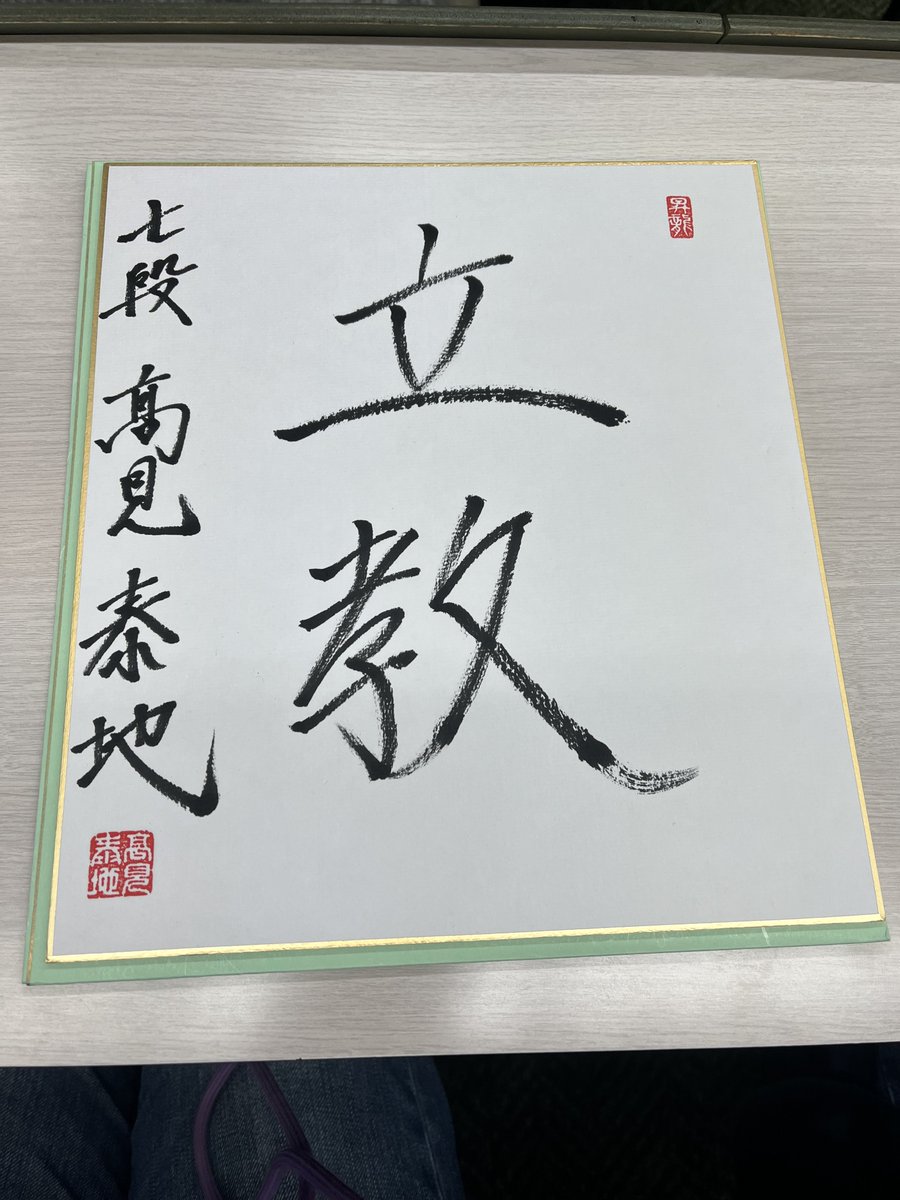 昇龍
立教
七段 高見泰地
髙見
泰地